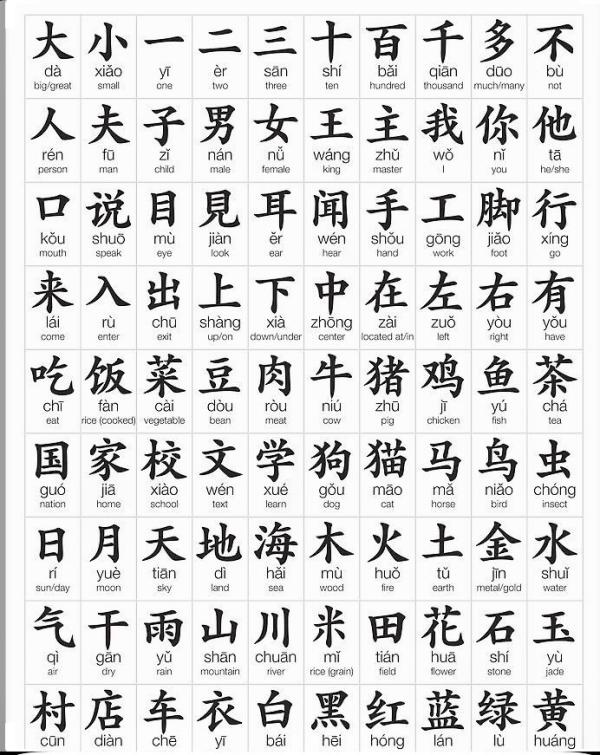 大 小 一 二 三 十 百 千 多 不
dà xiǎo yī èr sān shí bǎi qiān duō bù
big/great small one two three ten hundred thousand much/many not
人 夫 子 男 女 王 主 我 你 他
rén fū zǐ nán nǚ wáng zhǔ wǒ nǐ tā
person man child male female king master I you he/she
口 说 目 見 耳 闻 手 工 脚 行
kǒu shuō mù jiàn ěr wén shǒu gōng jiǎo xíng
mouth speak eye look ear hear hand work foot go
来 入 出 上 下 中 在 左 右 有
lái rù chū shàng xià zhōng zài zuǒ yòu yǒu
come enter exit up/on down/under center located at/in left right have
吃 饭 菜 豆 肉 牛 猪 鸡 鱼 茶
chī fàn cài dòu ròu niú zhū jī yú chá
eat rice (cooked) vegetable bean meat cow pig chicken fish tea
国 家 校 文 学 狗 猫 马 鸟 虫
guó jiā xiào wén xué gǒu māo mǎ niǎo chóng
nation home school text learn dog cat horse bird insect
日 月 天 地 海 木 火 土 金 水
rí yuè tiān dì hǎi mù huǒ tǔ jīn shuǐ
sun/day moon sky land sea wood fire earth metal/gold water
气 干 雨 山 川 米 田 花 石 玉
qì gān yǔ shān chuān mǐ tián huā shí yù
air dry rain mountain river rice (grain) field flower stone jade
村 店 车 衣 白 黑 红 蓝 绿 黄
cūn diàn chē yī bái hēi hóng lán lù huáng